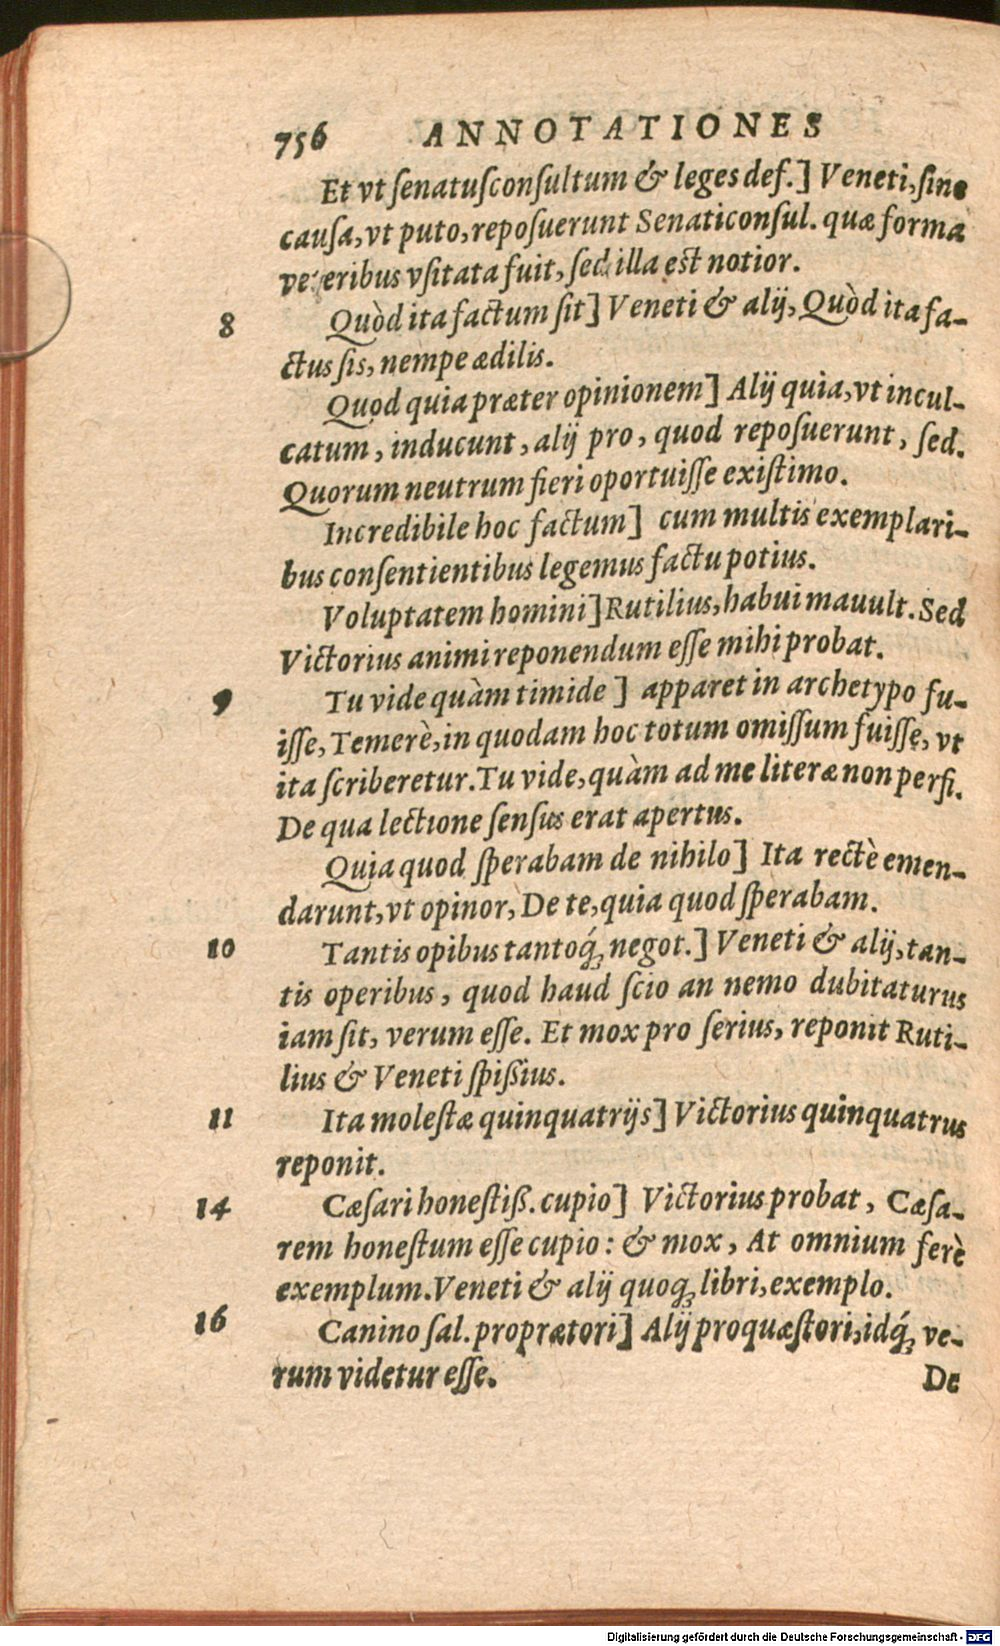 756 ANNOTATIONES
Et vt ſenatuſconſultum & leges def.] Veneti, ſine
cauſa, vt puto, repoſuerunt Senaticonſul. quæ forma
veteribus vſitata fuit, ſed illa est notior.
8 Quòd ita factum ſit] Veneti & alij, Quòd ita fa-
ctus ſis, nempe ædilis.
Quod quia præter opinionem] Alij quia, vt incul-
catum, inducunt, alij pro, quod repoſuerunt, ſed.
Quorum neutrum fieri oportuiſſe exiſtimo.
Incredibile hoc factum] cum multis exemplari-
bus conſentientibus legemus factu potius.
Voluptatem homini] Rutilius, habui mauult. Sed
Victorius animi reponendum eſſe mihi probat.
9 Tu vide quàm timide] apparet in archetypo fu-
iſſe, Temerè, in quodam hoc totum omiſſum fuiſſe, vt
ita ſcriberetur. Tu vide, quàm ad me literæ non perfi.
De qua lectione ſenſus erat apertus.
Quia quod ſperabam de nihilo] Ita rectè emen-
darunt, vt opinor, De te, quia quod ſperabam.
10 Tantis opibus tantoq́; negot.] Veneti & alij, tan-
tis operibus, quod haud ſcio an nemo dubitaturus
iam ſit, verum eſſe. Et mox pro ſerius, reponit Ruti-
lius & Veneti ſpißius.
11 Ita moleſtæ quinquatrijs] Victorius quinquatrus
reponit.
14 Cæſari honeſtiß. cupio] Victorius probat, Cæſa-
rem honeſtum eſſe cupio: & mox, At omnium ferè
exemplum. Veneti & alij quoq; libri, exemplo.
16 Canino ſal. proprætori] Alij proquæſtori, idq́; ve-
rum videtur eſſe.
De
Digitalisierung gefördert durch die Deutsche Forschungsgemeinschaft - DFG